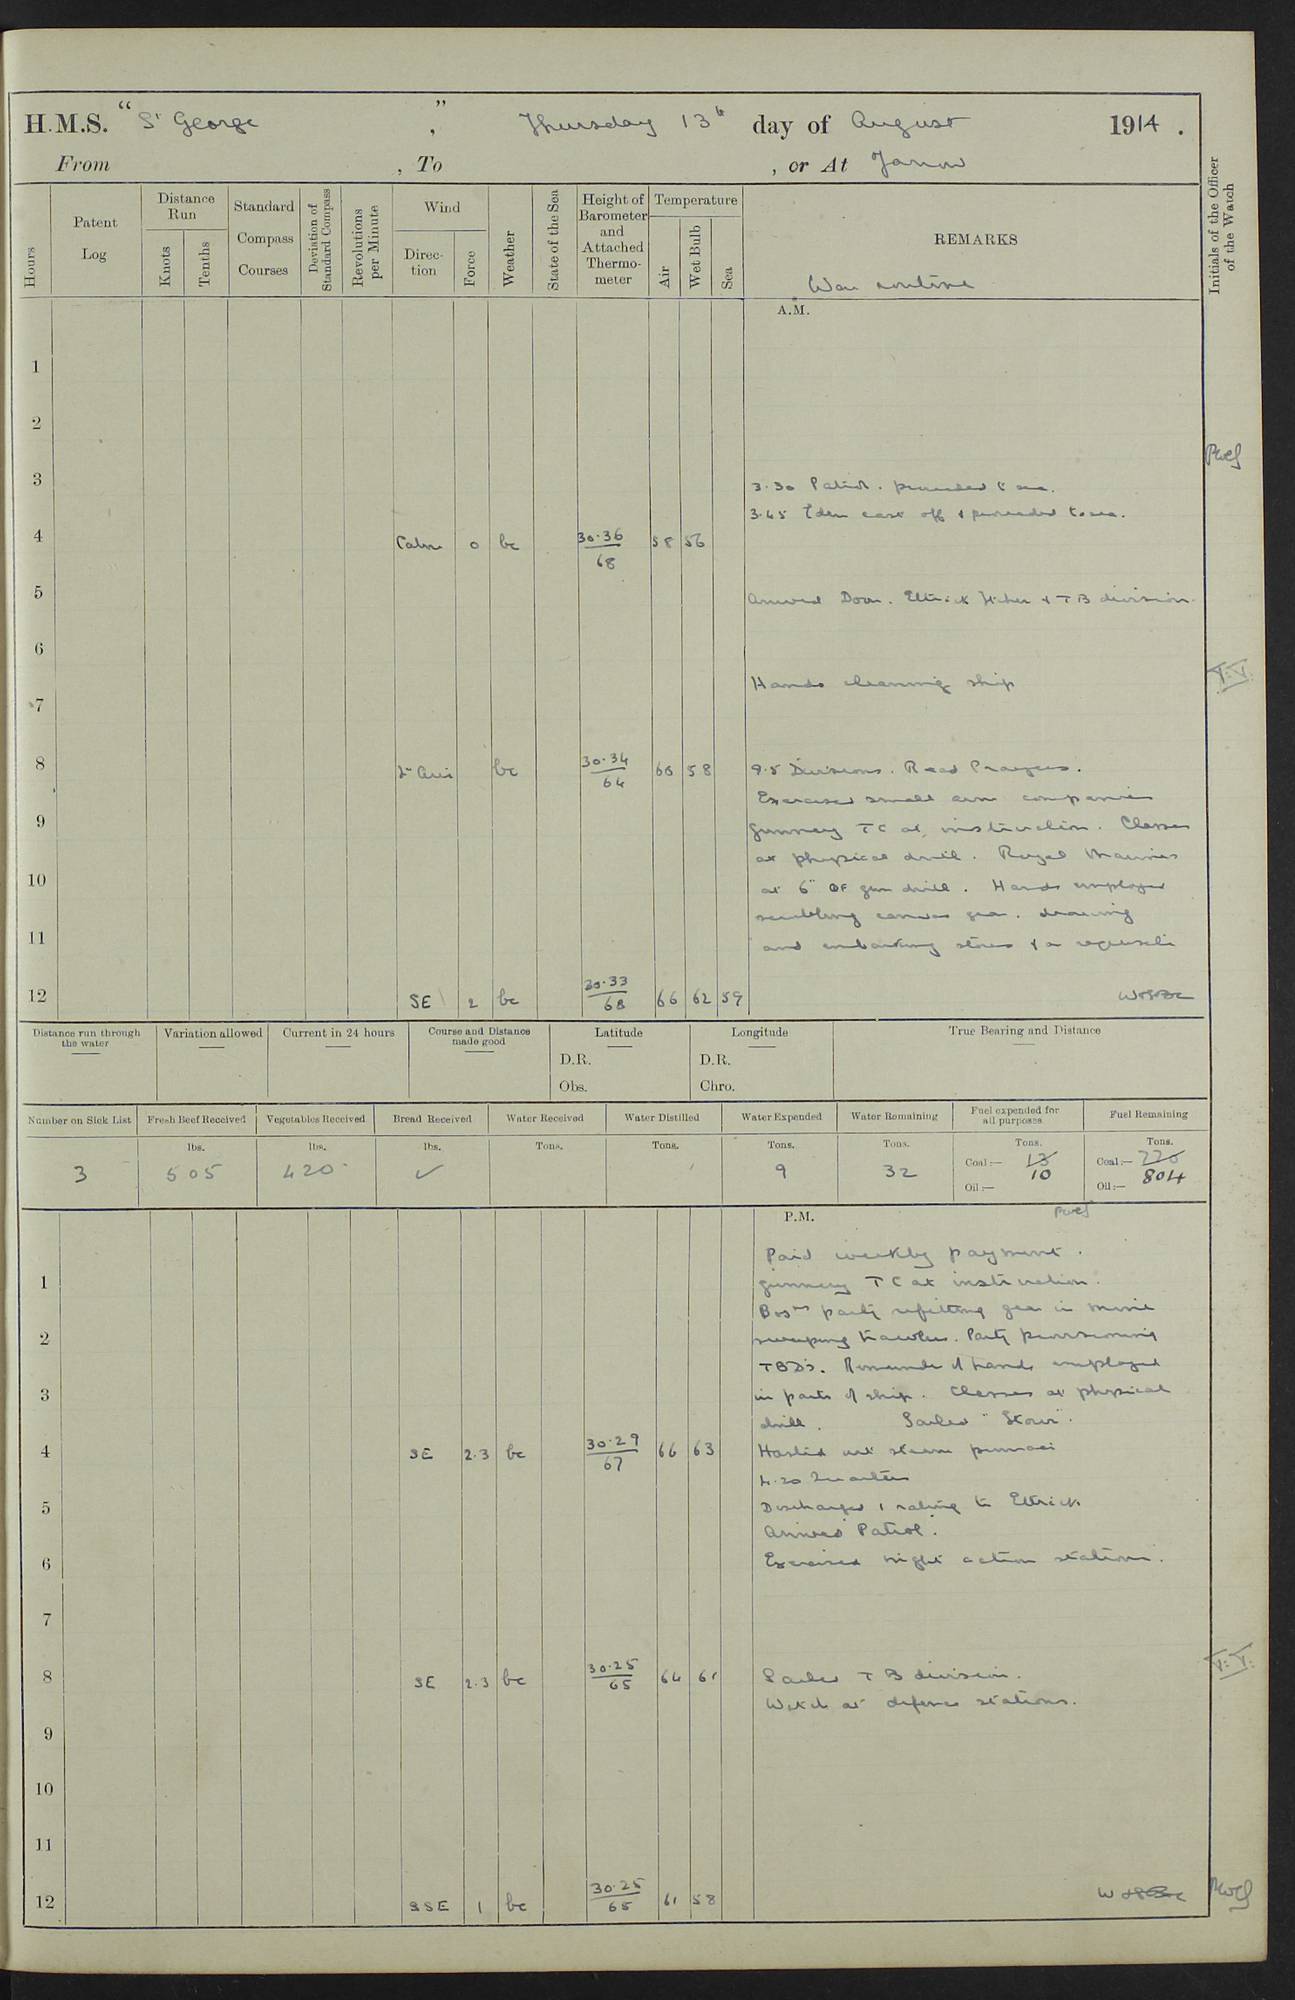 H.M.S. "St George", Thursday 13th day of August 1914.
From , To , or At Jarrow
Hours
Patent Log
Distance Run
Knots
Tenths
Standard Compass Courses
Deviation of Standard Compass
Revolutions per Minute
Wind
Direction
Force
Weather
State of the Sea
Height of Barometer and Attached Thermometer
Temperature
Air
Wet Bulb
Sea
REMARKS
War routine
Initials of the Officer of the Watch
A.M.
1
2
3
3.30 Patrol. proceeded to sea.
3.45 Eden cast off & proceeded to sea.
4 Calm 0 bc 30.36 68 58 56
5
Arrived Doon. Ettrick Itchen & TB division.
6
Hands cleaning ship
7
8 Lt Airs bc 30.34 64 58
9.5 Divisions. Read Prayers.
Exercised small arm companies
9
gunnery TC at instruction. Classes
at physical drill. Royal Marines
10
at 6" QF gun drill. Hands employed
scrubbing canvas gear. drawing
11
and embarking stores & as requisite
12 SE 2 bc 30.33 68 66 62 59
Distance run through the water
Variation allowed
Current in 24 hours
Course and Distance made good
Latitude
D.R.
Obs.
Longitude
D.R.
Chro.
True Bearing and Distance
Number on Sick List
Fresh Beef Received
Vegetables Received
Bread Received
Water Received
Water Distilled
Water Expended
Water Remaining
Fuel expended for all purposes
Fuel Remaining
lbs. lbs. lbs. Tons. Tons. Tons. Tons. Tons. Tons.
3 505 420 ✓ 9 32
Coal:— 13 10
Oil:—
Coal:— 804
Oil:—
P.M.
Paid weekly payment.
1
gunnery TC at instruction.
Bosns party refitting gear in mine
2
sweeping trawlers. Party provisioning
TBDs. Remainder of hands employed
3
in parts of ship. Classes at physical
drill. Sailed "Stour".
4 SE 2.3 bc 30.29 67 66 63
Hoisted out steam pinnace
4.20 Quarters
5
Discharged 1 rating to Ettrick
Arrived Patrol.
6
Exercised night action stations.
7
8 SE 2.3 bc 30.25 65 64 61
Sailed TB division.
Watch at defence stations.
9
10
11
12 SSE 1 bc 30.25 65 61 58